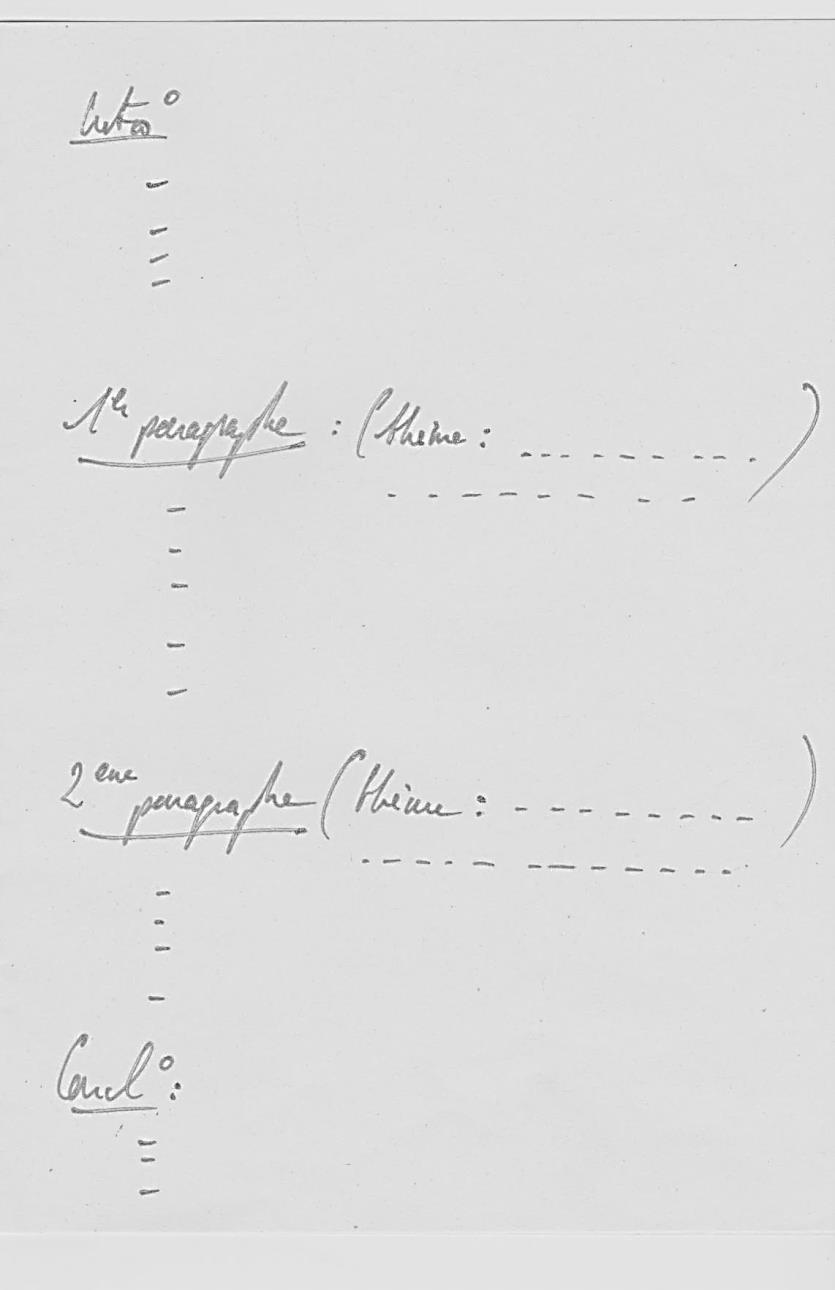 Intro°
-
-
-
-
1er paragraphe : (thème : ... - - - - - - - .)
- - - - - - - -
-
-
-
-
-
2ème paragraphe (thème : - - - - - - - -)
- - - - - - - - - - - -
-
-
-
-
Concl° :
-
-
-